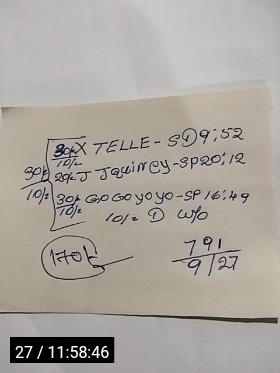 30k X TELLE - SD9;52
10/=
20k J JQUINCY-SP20;12
30k
10/=
30k GO GO YOYO-SP 16;49
10/=
10/= D W/O
170k
791
9/27
27 / 11:58:46